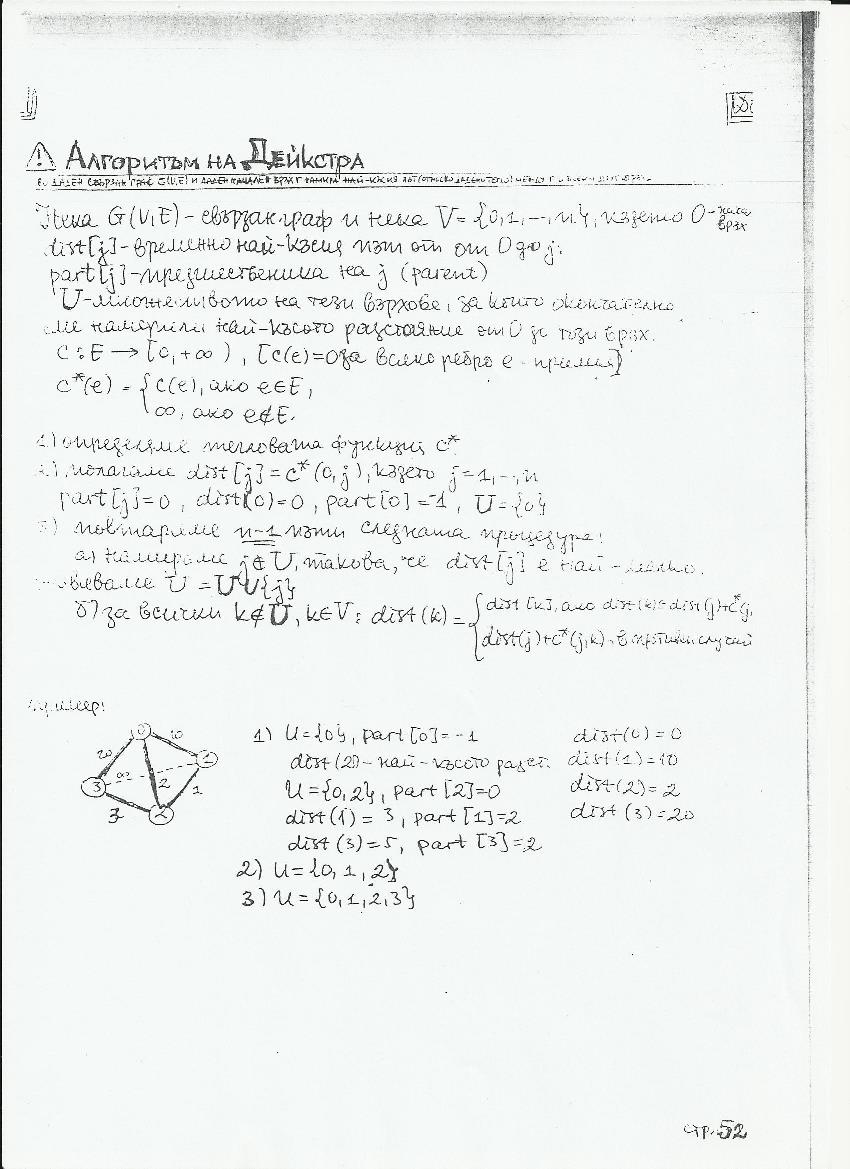 ⚠ Алгоритъм на Дейкстра
даден свързан граф G(V,E) и даден начален връх r най-къс
Нека G(V,E) - свързан граф и нека V={0,1,...,n}, където 0-нач. връх
dist[j]-временно най-късия път от от 0 до j.
part[j]-предшественика на j (parent)
U-множеството на тези върхове, за които окончателно
сме намерили най-късото разстояние от 0 до този връх.
C: E → [0,+∞), [c(e)=0 за всяко ребро e -
c*(e) = { c(e), ако e∈E,
∞, ако e∉E.
1) определяме тегловата функция c*
2) полагаме dist[j]=c*(0,j), където j=1,..,n
part[j]=0, dist(0)=0, part[0]=-1, U={0}
3) повтаряме n-1 пъти следната процедура:
а) намираме j∉U, такова, че dist[j] е най-малко.
U = U∪{j}
б) за всички k∉U, k∈V: dist(k) = { dist[k], ако dist(k)=dist(j)+c*j,
dist(j)+c*(j,k), в противен случай
Пример:
0
20
10
3
∞
1
2
1
3
2
1) U={0}, part[0]=-1
dist(2)-най-късото разст.
U={0,2}, part[2]=0
dist(1)=3, part[1]=2
dist(3)=5, part[3]=2
2) U={0,1,2}
3) U={0,1,2,3}
dist(0)=0
dist(1)=10
dist(2)=2
dist(3)=20
стр. 52